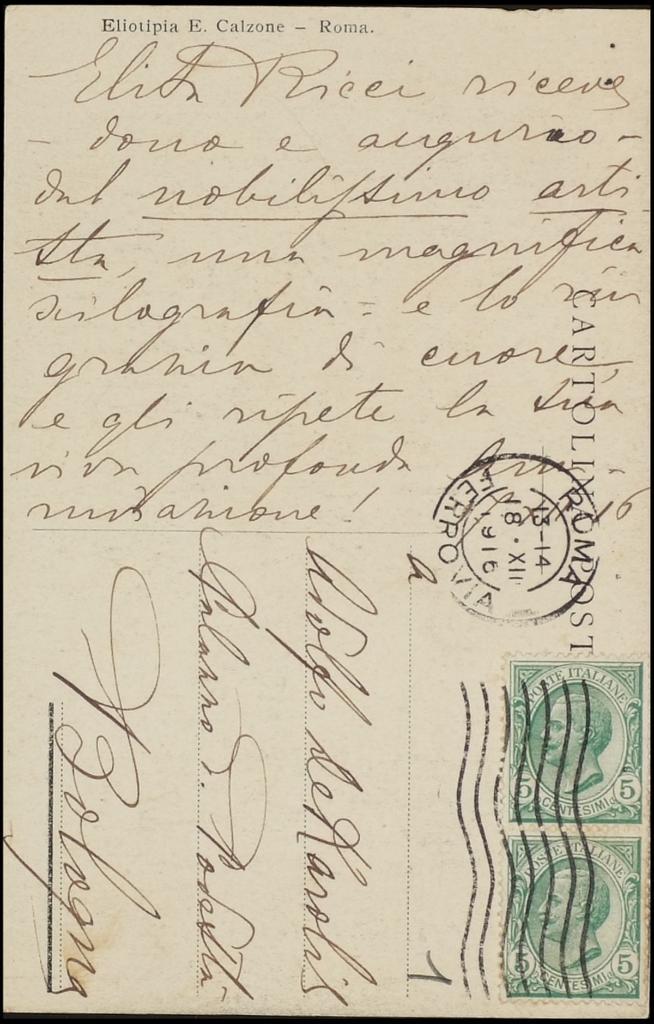 Eliotipia E. Calzone – Roma.
Elisa Ricci riceve
– dono e augurio –
dal nobilissimo arti
sta, una magnifica
silografia – e lo rin
grazia di cuore,
e gli ripete la sua
viva profonda am-
mirazione! 16
CARTOLINA POST
ROMA
FERROVIA
13-14
18.XII
1916
a
Adolfo De Karolis
Palazzo d. Podestà
Bologna
1
POSTE ITALIANE
5 CENTESIMI 5
POSTE ITALIANE
5 CENTESIMI 5